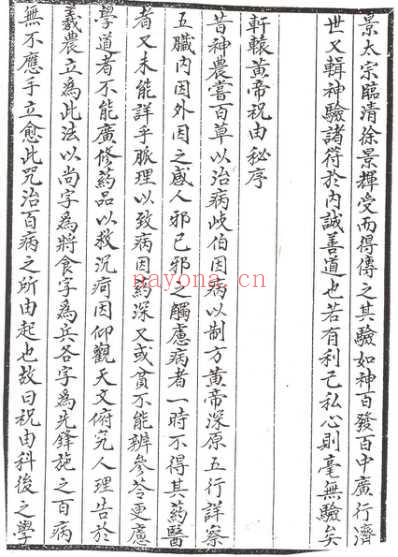 景太宗臨清徐景輝受而得傳之其驗如神百發百中廣行濟
世又輯神驗諸符於內誠善道也若有利己私心則毫無驗矣
軒轅黃帝祝由秘序
昔神農嘗百草以治病歧伯因病以制方黃帝深原五行詳察
五臟內因外因之感人邪己邪之觸慮病者一時不得其藥醫
者又未能詳乎脈理以致病因約深又或貧不能辦參苓更慮
學道者不能廣修藥品以救沉疴因仰觀天文俯究人理告於
羲農立為此法以尚字為將食字為兵各字為先鋒施之百病
無不應手立愈此咒治百病之所由起也故曰祝由科後之學
nayona.cn